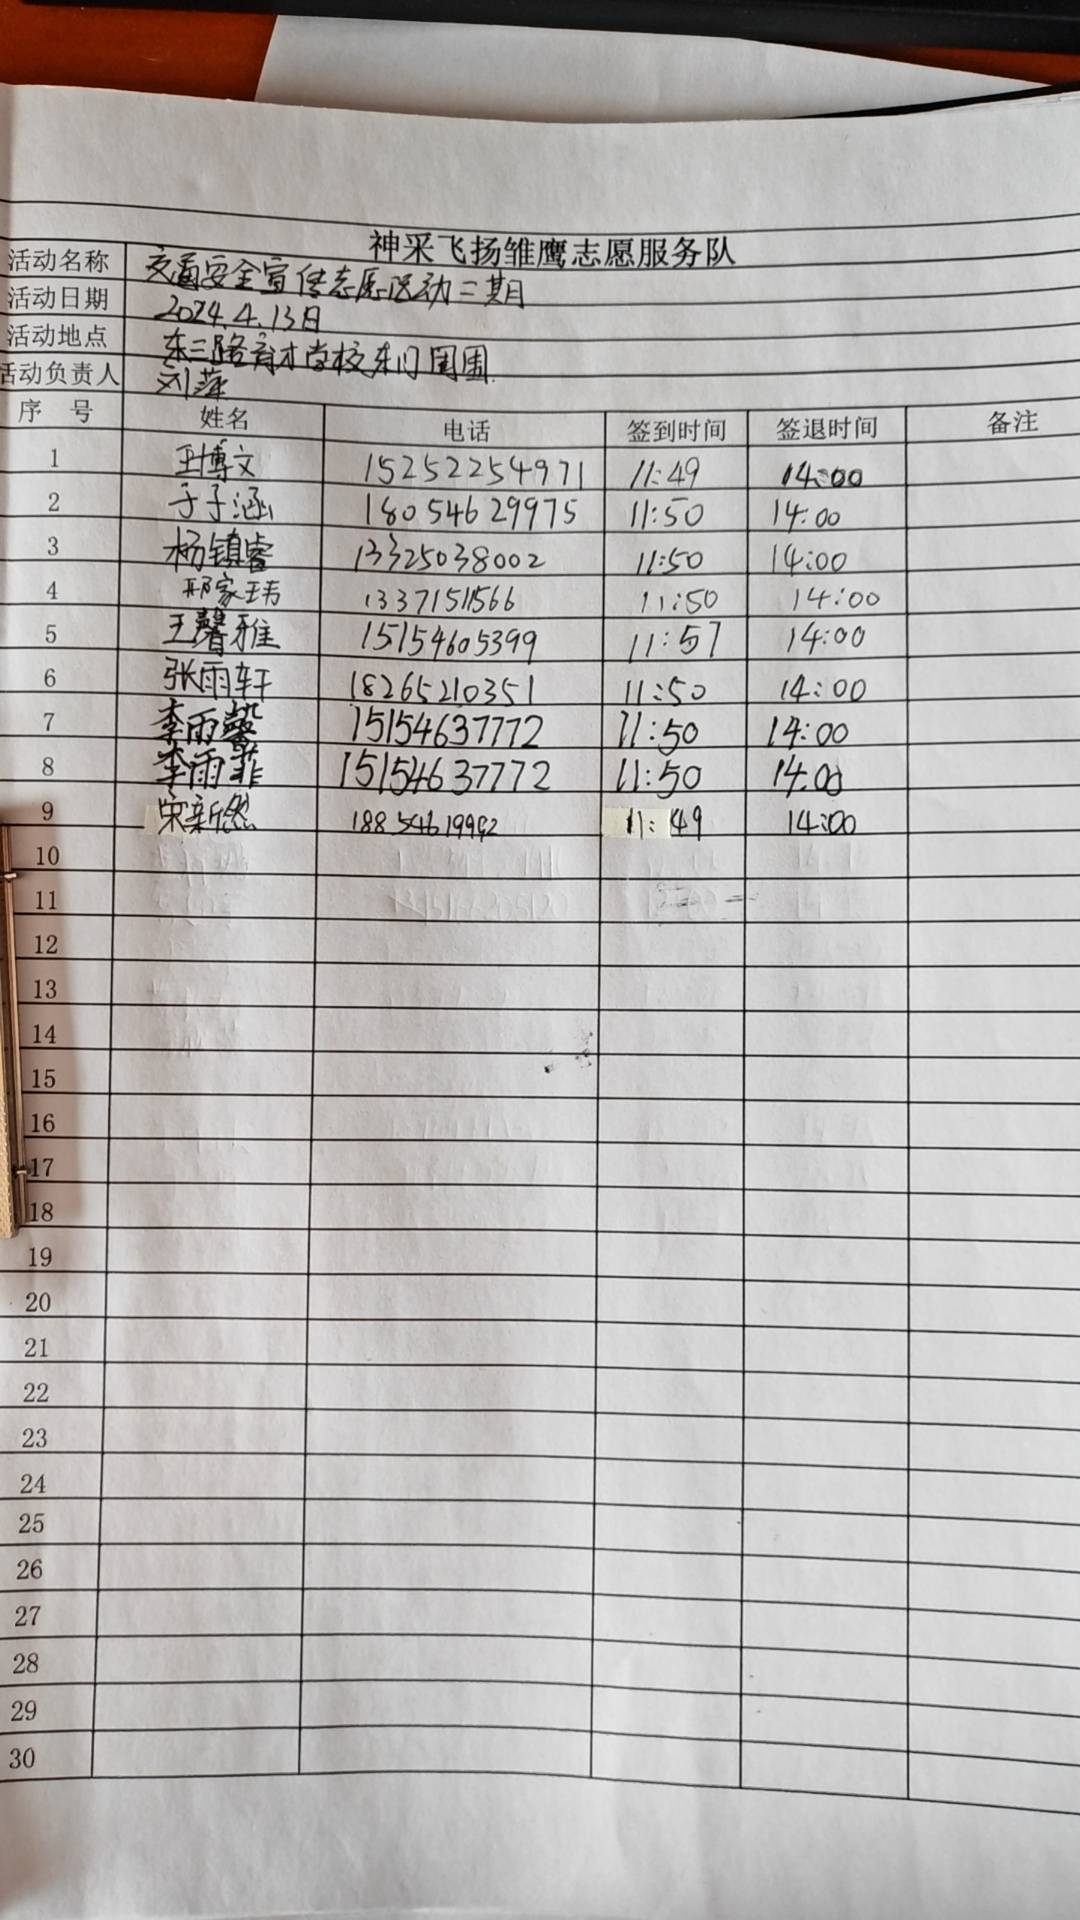 神采飞扬雏鹰志愿服务队
活动名称 交通安全宣传志愿活动二期
活动日期 2024.4.13日
活动地点 东二路育才学校东门周围
活动负责人 刘萍
序 号 姓名 电话 签到时间 签退时间 备注
1 王博文 15252254971 11:49 14:00
2 于子涵 18054629975 11:50 14:00
3 杨镇睿 13325038002 11:50 14:00
4 邢家玮 13371511566 11:50 14:00
5 王馨雅 15154605399 11:57 14:00
6 张雨轩 18265210351 11:50 14:00
7 李雨馨 15154637772 11:50 14:00
8 李雨菲 15154637772 11:50 14:00
9 宋新然 18854619992 11:49 14:00
10
11
12
13
14
15
16
17
18
19
20
21
22
23
24
25
26
27
28
29
30